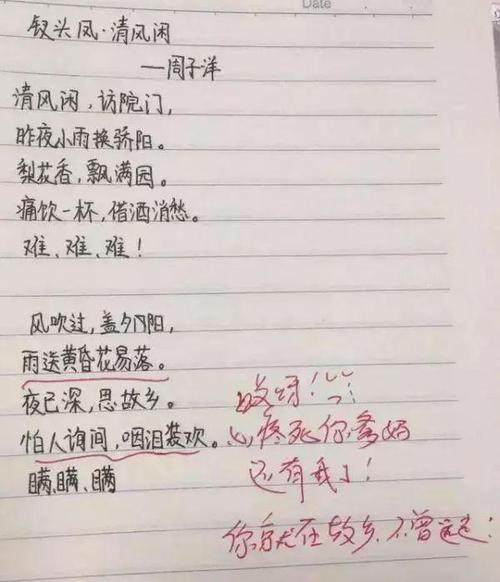 Date
钗头凤·清风闲
—周子洋
清风闲,访院门,
昨夜小雨换骄阳。
梨花香,飘满园。
痛饮一杯,借酒消愁。
难、难、难!
风吹过,盖夕阳,
雨送黄昏花易落。
夜已深,思故乡。
怕人询问,咽泪装欢。
瞒、瞒、瞒
哎呀!
心疼死你爹妈
还有我了!
你就在故乡,不曾远